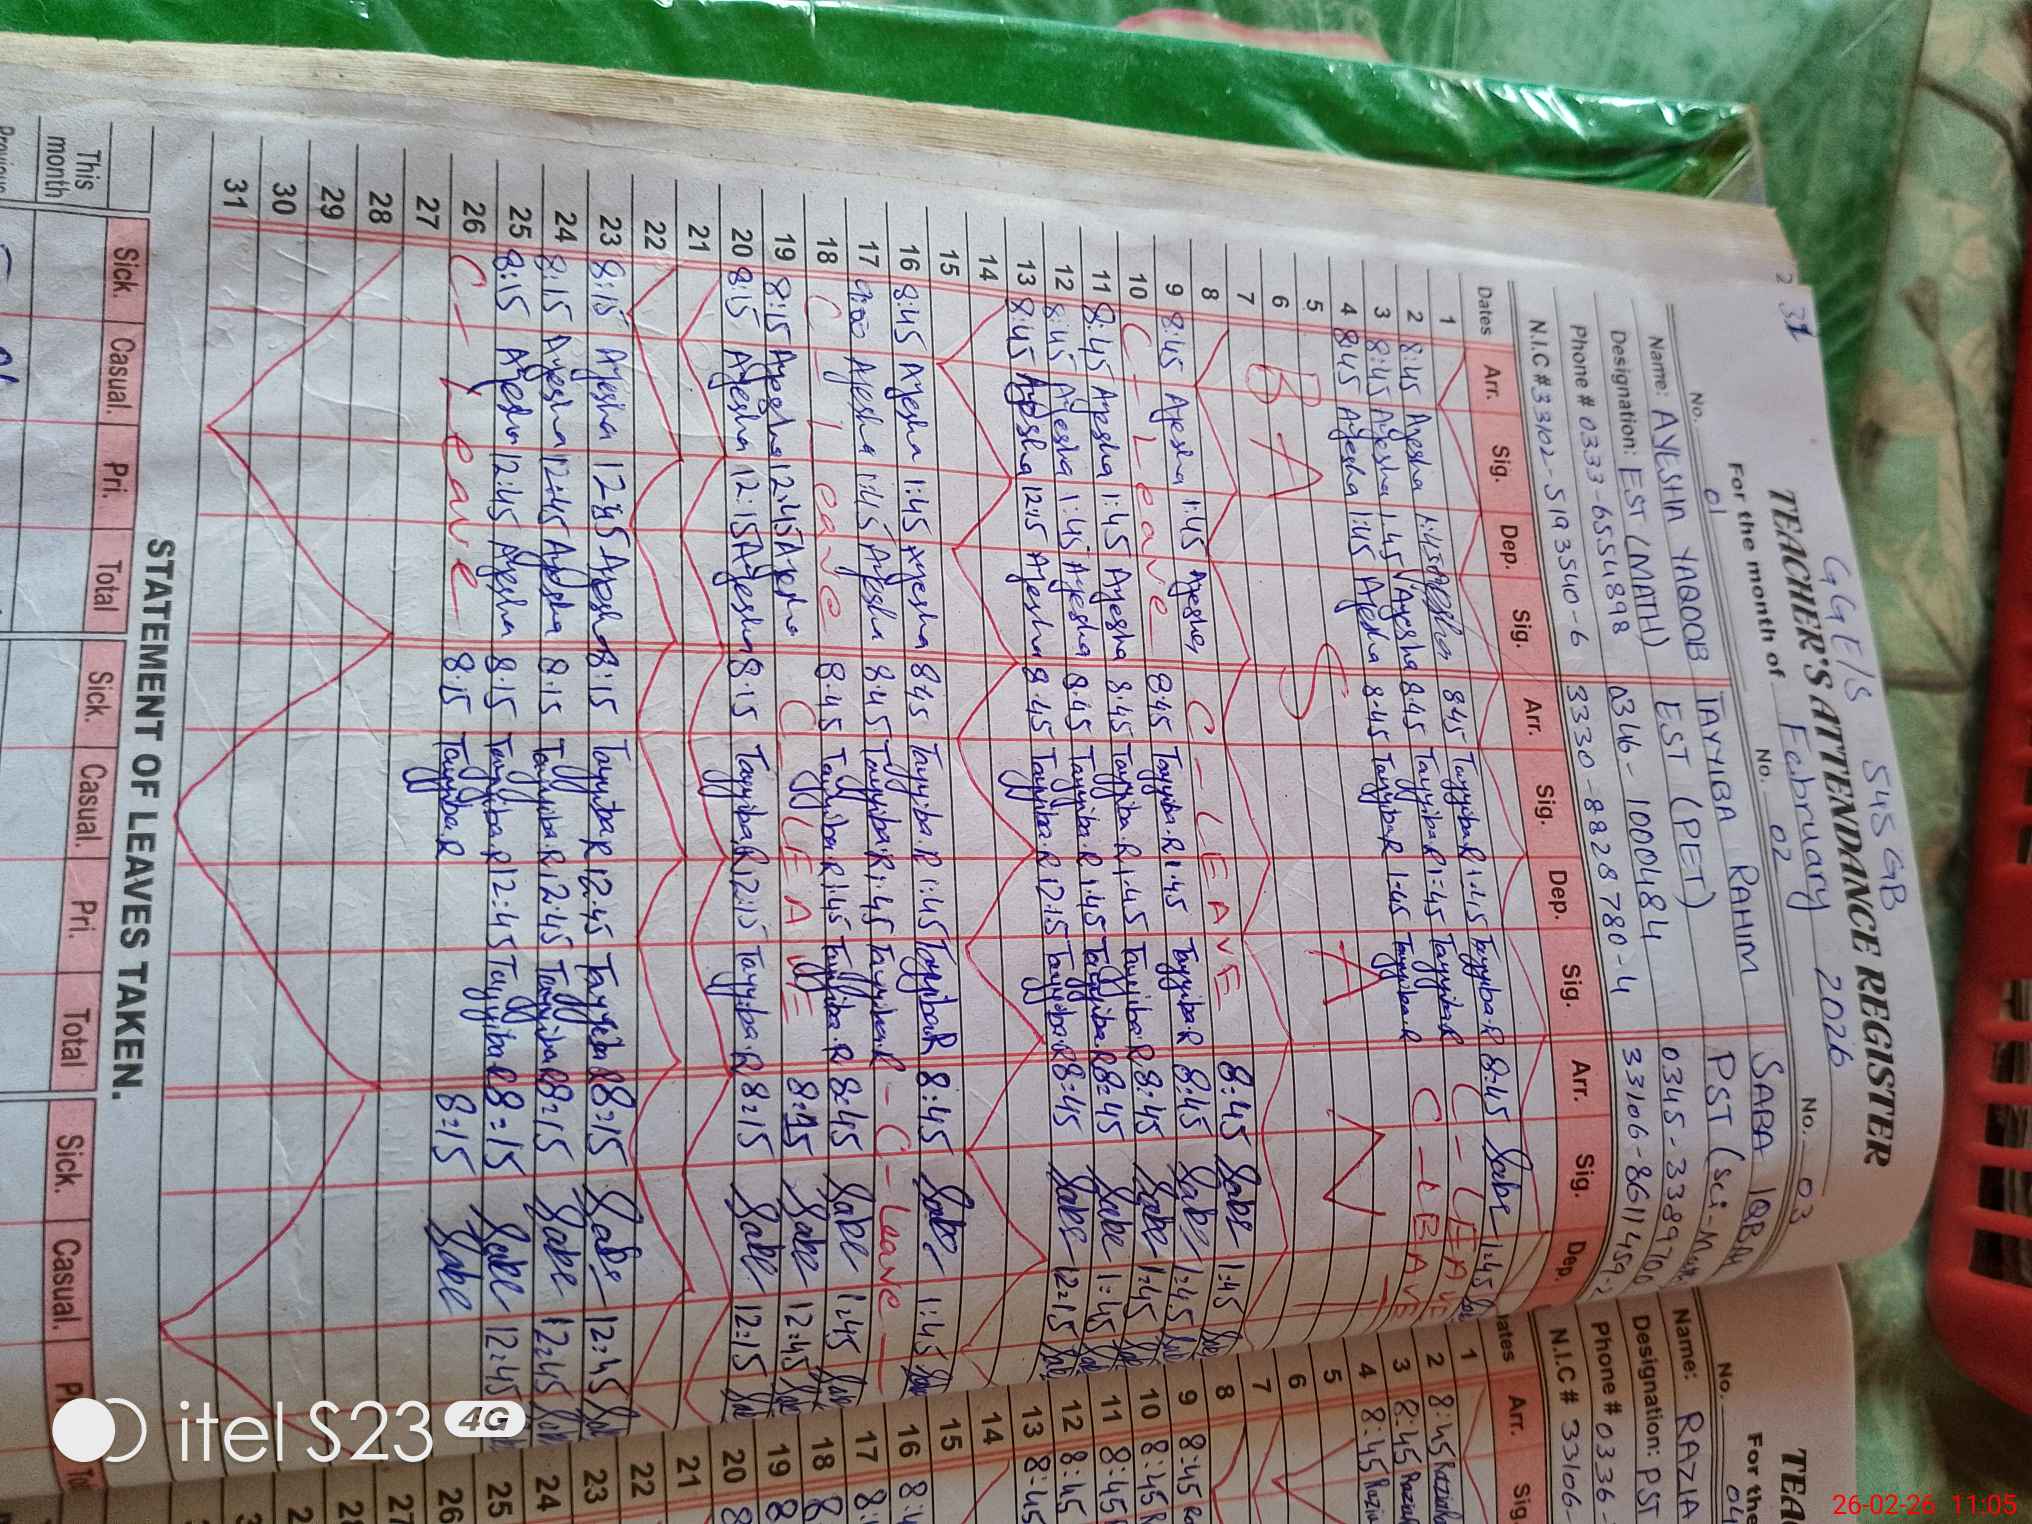 GGE/S 545 GB
TEACHER'S ATTENDANCE REGISTER
For the month of February 2026
No. 01 No. 02 No. 03
Name: AYESHA YAQOOB TAYYIBA RAHIM SABA IQBAL
Designation: EST (MATH) EST (PET) PST (Sci-
Phone # 0333-6554898 0346-1000484 0345-3389700
N.I.C # 33102-5193540-6 3330-8828780-4 33106-8611459-2
Dates Arr. Sig. Dep. Sig. Arr. Sig. Dep. Sig. Arr. Sig. Dep.
1
2 8:45 Ayesha 1:45 Ayesha 8:45 Tayyiba.R 1:45 Tayyiba.R 8:45 Sabe 1:45
3 8:45 Ayesha 1:45 Ayesha 8:45 Tayyiba.R 1:45 Tayyiba.R C-LEAVE
4 8:45 Ayesha 1:45 Ayesha 8:45 Tayyiba.R 1:45 Tayyiba.R C-LEAVE
5 BASANT
6
7
8
9 8:45 Ayesha 1:45 Ayesha C-LEAVE 8:45 Sabe 1:45
10 C-Leave 8:45 Tayyiba.R 1:45 Tayyiba.R 8:45 Sabe 1:45
11 8:45 Ayesha 1:45 Ayesha 8:45 Tayyiba.R 1:45 Tayyiba.R 8:45 Sabe 1:45
12 8:45 Ayesha 1:45 Ayesha 8:45 Tayyiba.R 1:45 Tayyiba.R 8:45 Sabe 1:45
13 8:45 Ayesha 12:15 Ayesha 8:45 Tayyiba.R 12:15 Tayyiba.R 8:45 Sabe 12:15
14
15
16 8:45 Ayesha 1:45 Ayesha 8:45 Tayyiba.R 1:45 Tayyiba.R 8:45 Sabe 1:45
17 9:00 Ayesha 1:45 Ayesha 8:45 Tayyiba.R 1:45 Tayyiba.R -C-Leave-
18 C-Leave 8:45 Tayyiba.R 1:45 Tayyiba.R 8:45 Sabe 1:45
19 8:15 Ayesha 12:45 Ayesha C-LEAVE 8:15 Sabe 12:45
20 8:15 Ayesha 12:15 Ayesha 8:15 Tayyiba.R 12:15 Tayyiba.R 8:15 Sabe 12:15
21
22
23 8:15 Ayesha 12:45 Ayesha 8:15 Tayyiba.R 12:45 Tayyiba.R 8:15 Sabe 12:45
24 8:15 Ayesha 12:45 Ayesha 8:15 Tayyiba.R 12:45 Tayyiba.R 8:15 Sabe 12:45
25 8:15 Ayesha 12:45 Ayesha 8:15 Tayyiba.R 12:45 Tayyiba.R 8:15 Sabe 12:45
26 C-Leave 8:15 Tayyiba.R 8:15 Sabe
27
28
29
30
31
STATEMENT OF LEAVES TAKEN.
Sick. Casual. Pri. Total Sick. Casual. Pri. Total Sick. Casual.
This month
No. 04
For the
Name: RAZIA
Designation: PST
Phone # 0336-
N.I.C # 33106-
Arr. Sig.
1
2 8:45
3 8:45
4 8:45
5
6
7
8
9 8:45
10 8:45
11 8:45
12 8:45
13 8:45
14
15
16
17
18
19
20
21
22
23
24
25
26
27
itel S23 4G
26-02-26 11:05